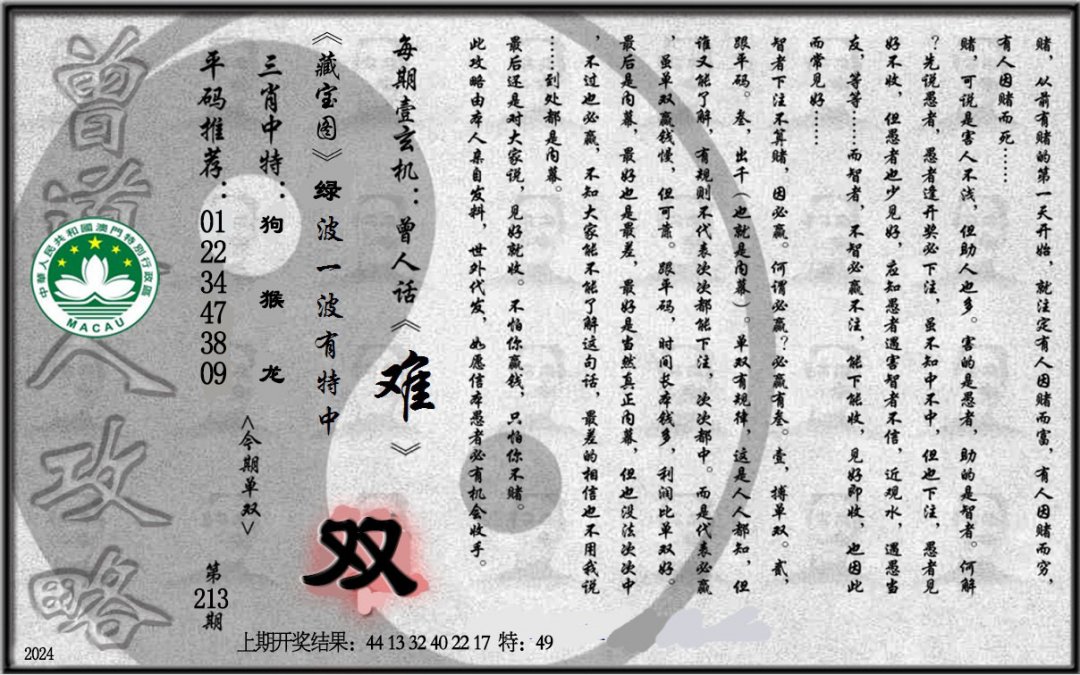 赌，从前有赌的第一天开始，就注定有人因赌而富，有人因赌而穷，
有人因赌而死……
赌，可说是害人不浅，但助人也多。害的是愚者，助的是智者。何解
？先说愚者，愚者逢开奖必下注，虽不知中不中，但也下注，愚者见
好不收，但愚者也少见好，应知愚者遇害智者不信，近观水，遇愚当
友，等等……而智者，不智必赢不注，能下能收，见好即收，也因此
而常见好……
智者下注不算赌，因必赢。何谓必赢？必赢有叁。壹，搏单双。贰，
跟平码。叁，出千（也就是内幕）。单双有规律，这是人人都知，但
谁又能了解，有规则不代表次次都能下注，次次都中。而是代表必赢
，虽单双赢钱慢，但可靠。跟平码，时间长本钱多，利润比单双好。
最后是内幕，最好也是最差，最好是当然真正内幕，但也没法次次中
，不过也必赢，不知大家能不能了解这句话，最差的相信也不用我说
……到处都是内幕。
最后还是对大家说，见好就收。不怕你赢钱，只怕你不赌。
此攻略由本人亲自发料，世外代发，如愿信本愚者必有机会收手。
每期壹玄机：曾人话《难》
《藏宝图》绿波一波有特中
双
三肖中特：狗 猴 龙
<今期单双>
平码推荐：01 22 34 47 38 09
第213期
曾道人攻略
中華人民共和國澳門特別行政區
MACAU
上期开奖结果：44 13 32 40 22 17 特：49
2024